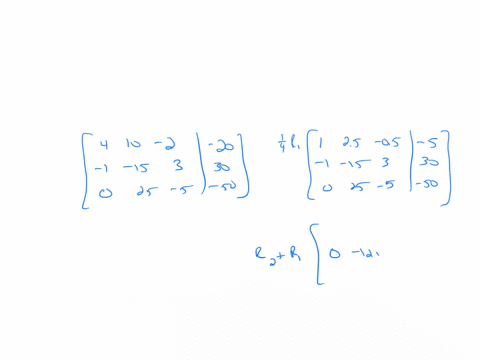 4 10 -2 | -20
-1 -15 3 | 30
0 25 -5 | -50
1/4 R₁ 1 2.5 -0.5 | -5
-1 -15 3 | 30
0 25 -5 | -50
R₂ + R₁ [ 0 -12.